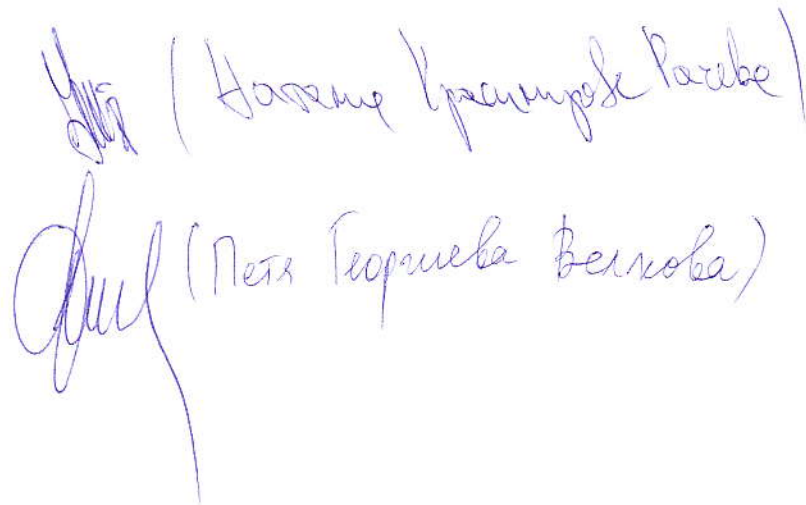 (Наталия Красимирова Рачева)
(Петя Георгиева Велкова)